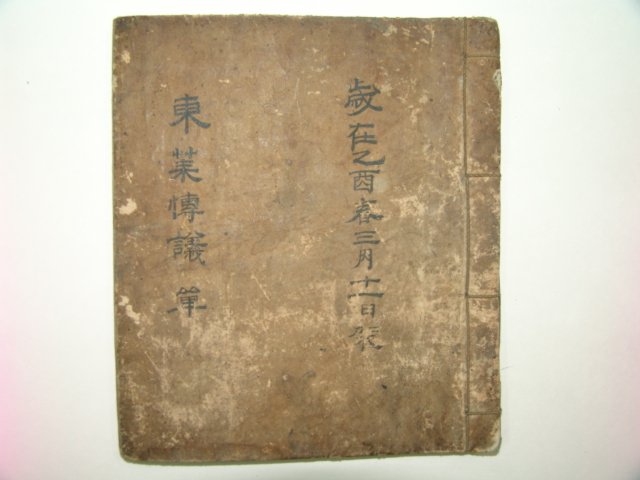 歲在乙酉春三月十一日裝
東萊博議 單